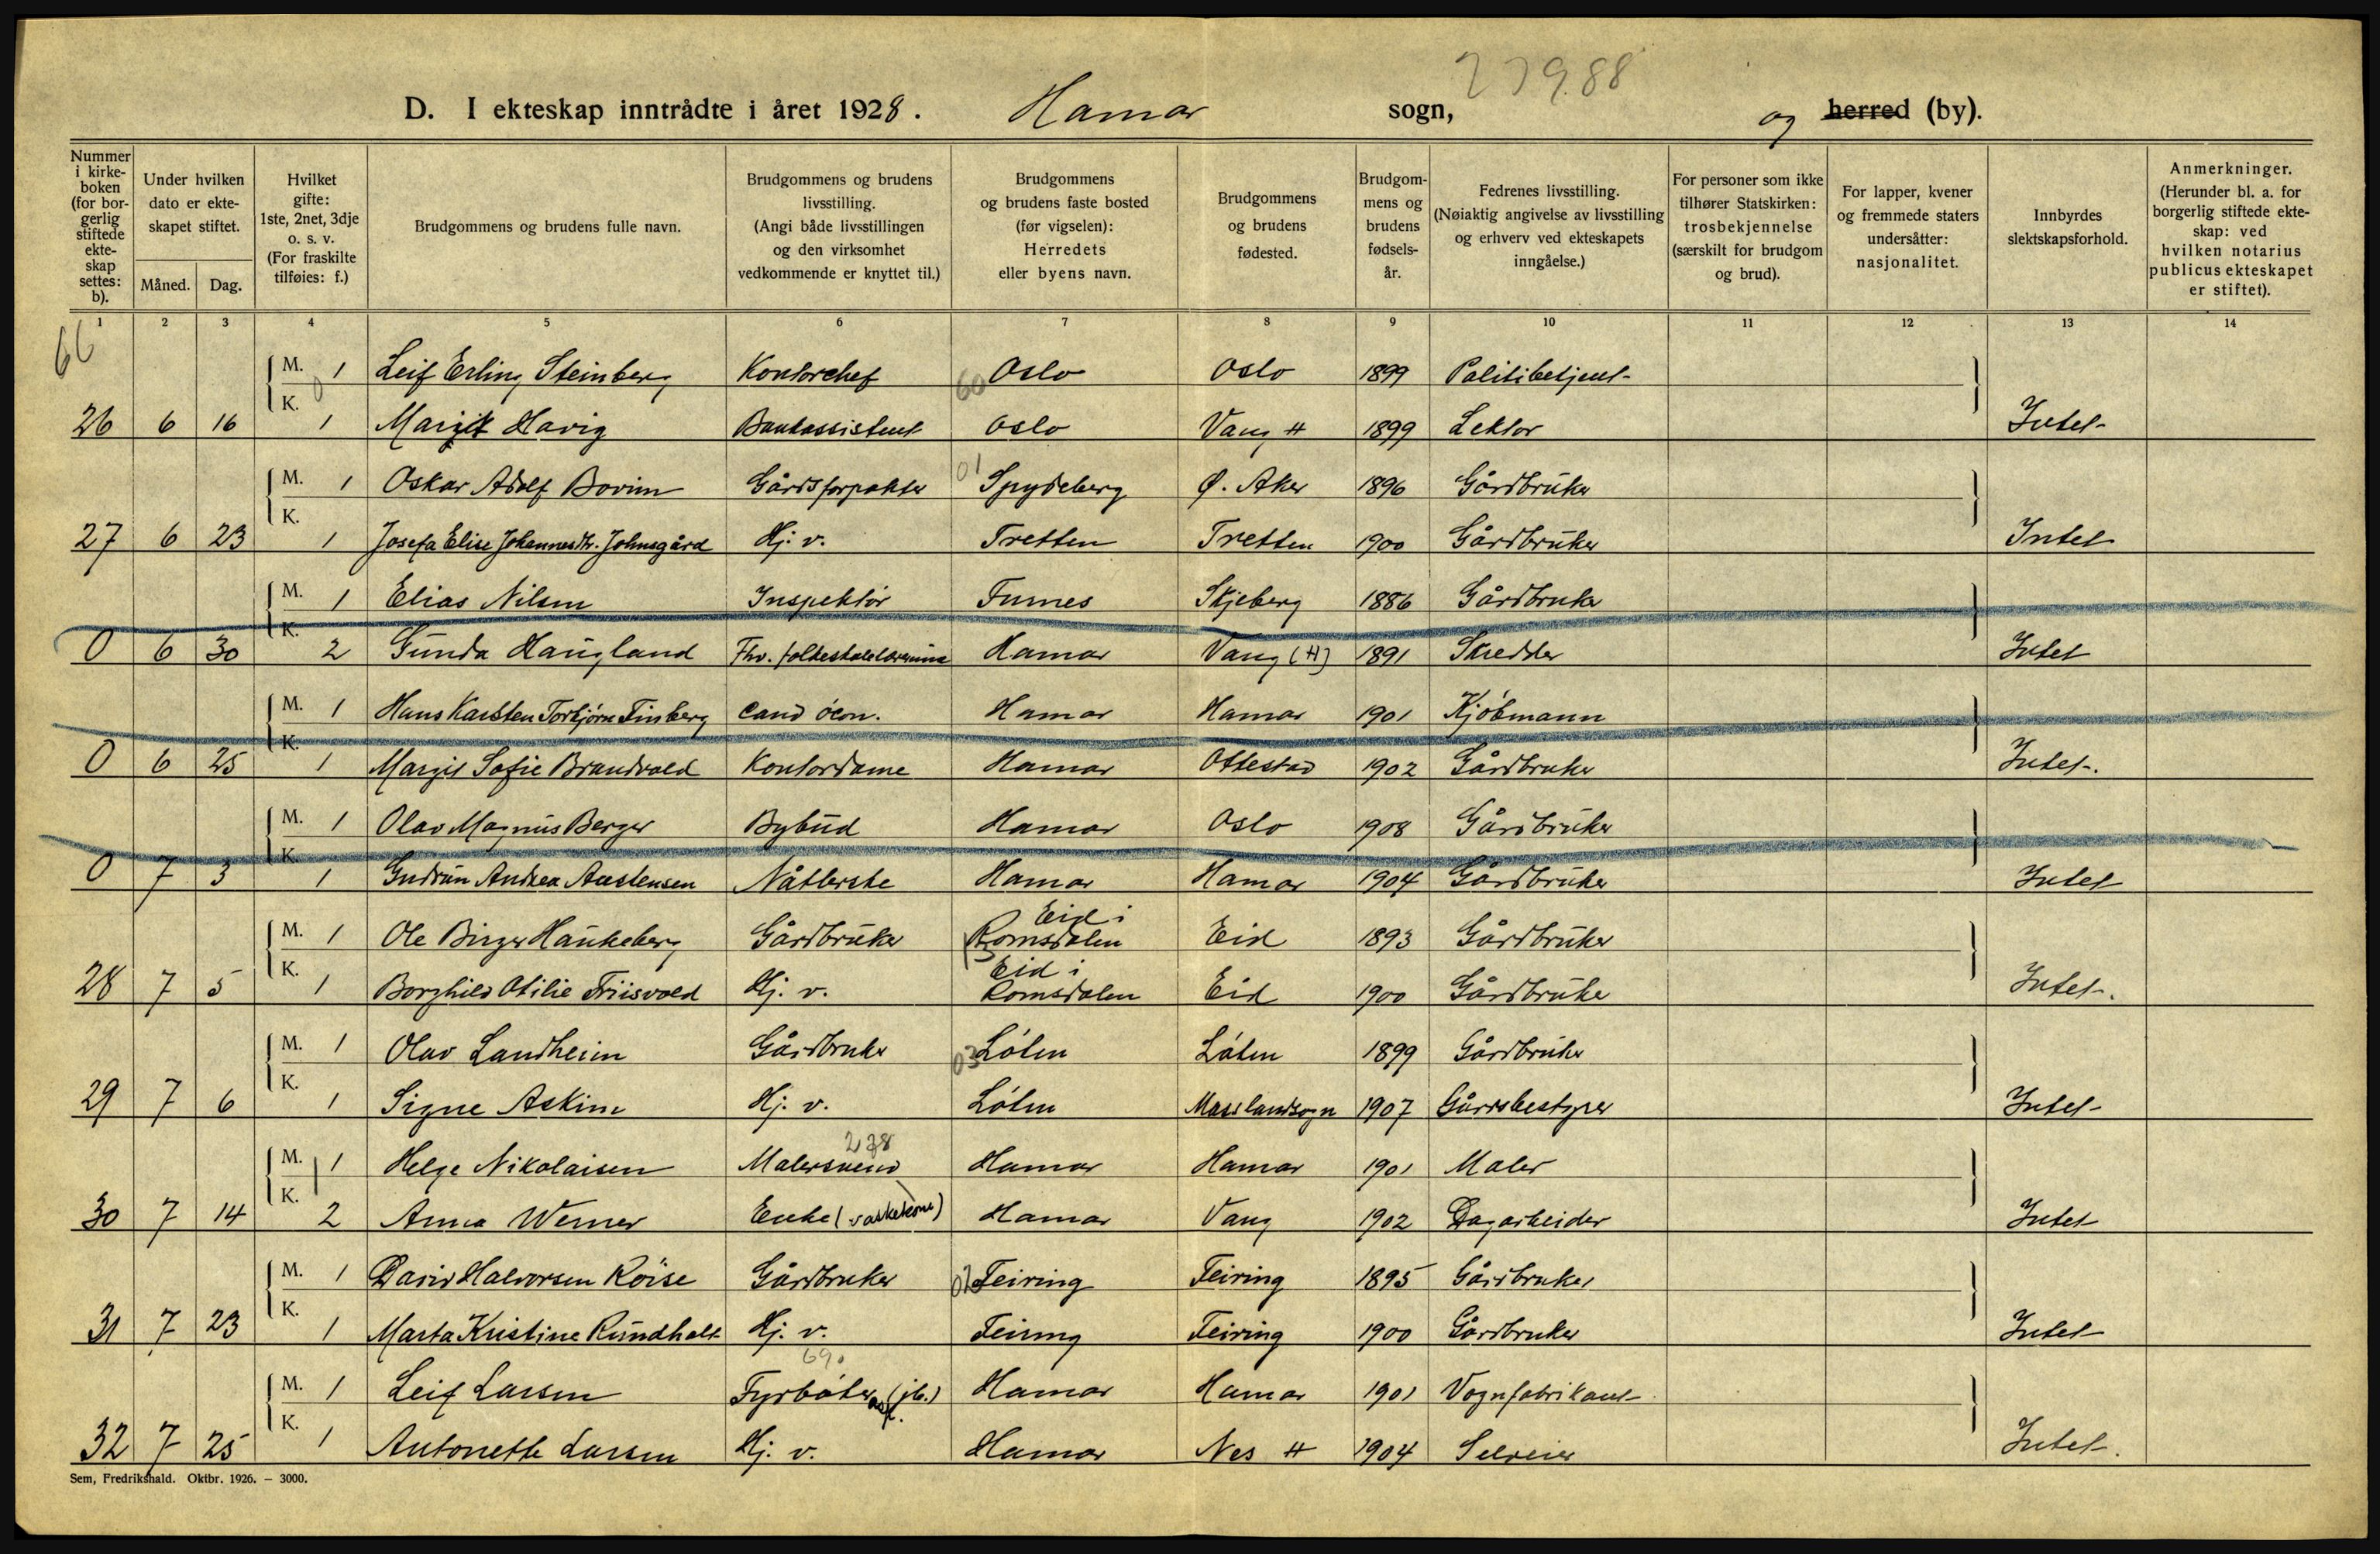 27988
D. I ekteskap inntrådte i året 1928. Hamar sogn, og herred (by).
Nummer i kirkeboken (for borgerlig stiftede ekteskap settes: b). Under hvilken dato er ekteskapet stiftet. Måned. Dag. Hvilket gifte: 1ste, 2net, 3dje o. s. v. (For fraskilte tilføies: f.) Brudgommens og brudens fulle navn. Brudgommens og brudens livsstilling. (Angi både livsstillingen og den virksomhet vedkommende er knyttet til.) Brudgommens og brudens faste bosted (før vigselen): Herredets eller byens navn. Brudgommens og brudens fødested. Brudgommens og brudens fødselsår. Fedrenes livsstilling. (Nøiaktig angivelse av livsstilling og erhverv ved ekteskapets inngåelse.) For personer som ikke tilhører Statskirken: trosbekjennelse (særskilt for brudgom og brud). For lapper, kvener og fremmede staters undersåtter: nasjonalitet. Innbyrdes slektskapsforhold. Anmerkninger. (Herunder bl. a. for borgerlig stiftede ekteskap: ved hvilken notarius publicus ekteskapet er stiftet).
1 2 3 4 5 6 7 8 9 10 11 12 13 14
66
M. 1 Leif Erling Steinberg Kontorchef 60 Oslo Oslo 1899 Politibetjent
26 6 16 K. 1 Margit Havig Bankassistent Oslo Vang H 1899 Lektor Intet
M. 1 Oskar Adolf Bovim Gårdsforpakter 01 Spydeberg Ø. Aker 1896 Gårdbruker
27 6 23 K. 1 Josefa Elise Johannesdtr. Johnsgård Hj. v. Tretten Tretten 1900 Gårdbruker Intet
M. 1 Elias Nilsen Inspektör Furnes Skjeberg 1886 Gårdbruker
0 6 30 K. 2 Gunda Haugland Fhv. folkeskolelærerinne Hamar Vang (H) 1891 Skredder Intet
M. 1 Hans Karsten Torbjørn Finberg Cand öcon. Hamar Hamar 1901 Kjöbmann
0 6 25 K. 1 Margit Sofie Brandvold Kontordame Hamar Ottestad 1902 Gårdbruker Intet.
M. 1 Olav Magnus Berger Bybud Hamar Oslo 1908 Gårdbruker
0 7 3 K. 1 Gudrun Andrea Austensen Nåtlerske Hamar Hamar 1904 Gårdbruker Intet
M. 1 Ole Birger Haukeberg Gårdbruker Eid i Romsdalen Eid 1893 Gårdbruker
28 7 5 K. 1 Borghild Otilie Friisvold Hj. v. Eid i Romsdalen Eid 1900 Gårdbruker Intet.
M. 1 Olav Landheim Gårdbruker 03 Löten Löten 1899 Gårdbruker
29 7 6 K. 1 Signe Askim Hj. v. Löten 1907 Gårdsbestyrer Intet
M. 1 Helge Nikolaisen Malersvend 278 Hamar Hamar 1901 Maler
30 7 14 K. 2 Anna Werner Enke (vaskekone) Hamar Vang 1902 Dagarbeider Intet
M. 1 David Halvorsen Röise Gårdbruker 02 Feiring Feiring 1895 Gårdbruker
31 7 23 K. 1 Marta Kristine Rundholt Hj. v. Feiring Feiring 1900 Gårdbruker Intet
M. 1 Leif Larsen Fyrböter asp. (jb.) 69. Hamar Hamar 1901 Vognfabrikant
32 7 25 K. 1 Antonette Larsen Hj. v. Hamar Nes H 1904 Selveier Intet.
Sem, Fredrikshald. Oktbr. 1926. – 3000.